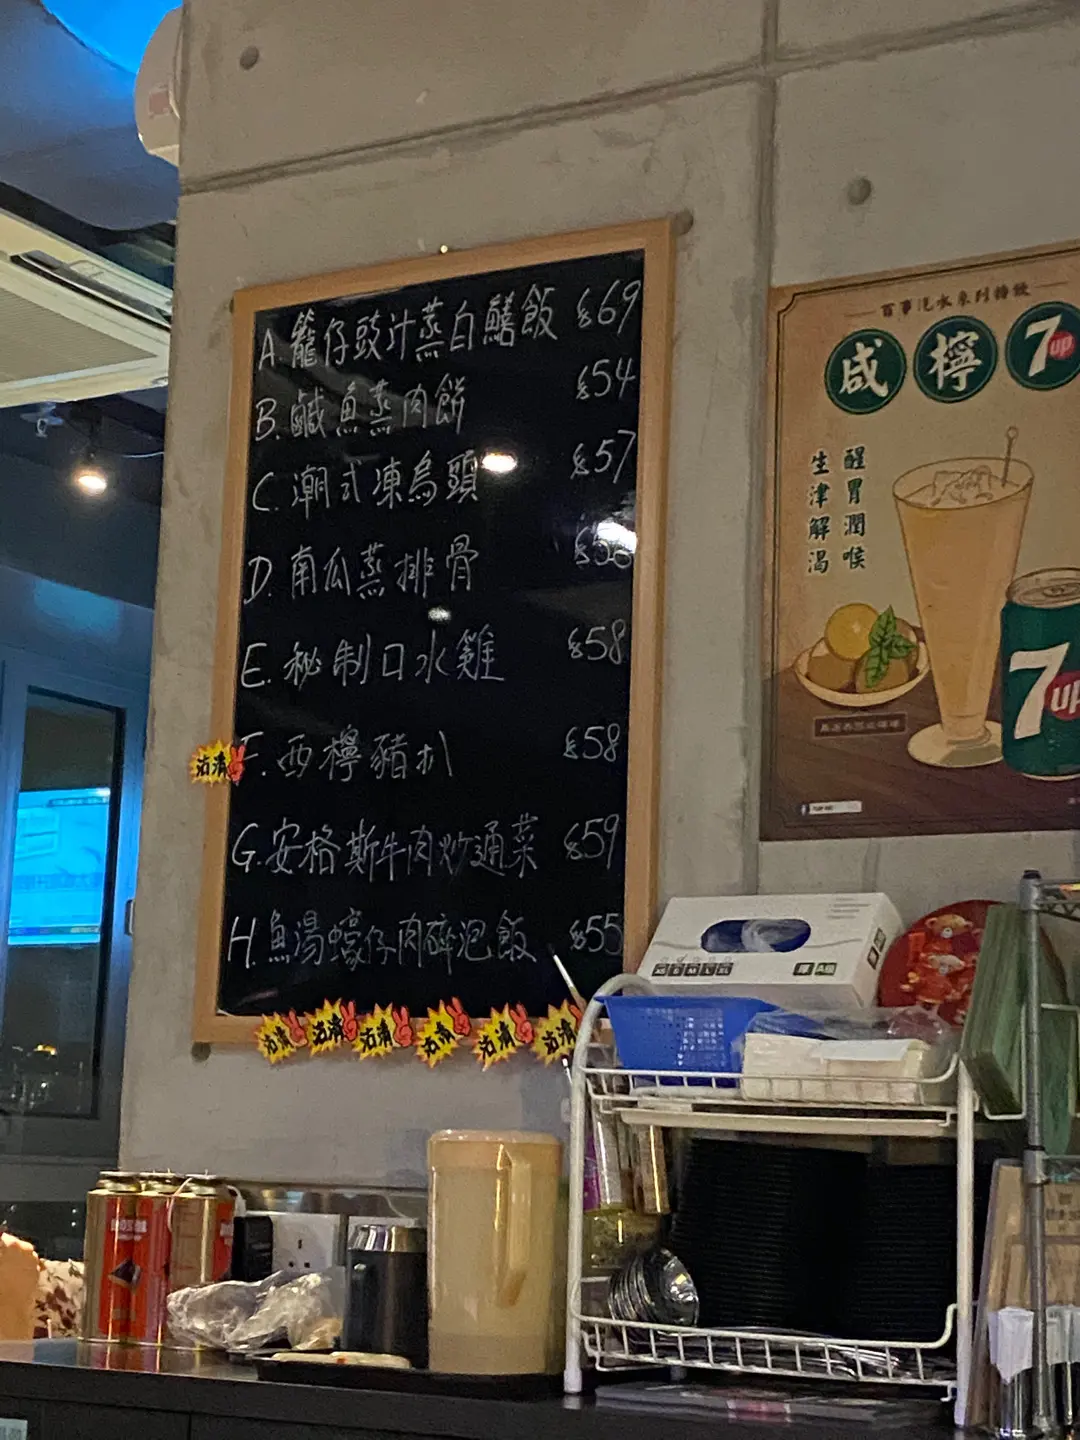 A. 籠仔豉汁蒸白鱔飯 $69
B. 鹹魚蒸肉餅 $54
C. 潮式凍烏頭 $57
D. 南瓜蒸排骨
E. 秘制口水雞 $58
沽清 F. 西檸豬扒 $58
G. 安格斯牛肉炒通菜 $59
H. 魚湯蠔仔肉碎泡飯 $55
沽清 沽清 沽清 沽清 沽清 沽清
百事汽水系列特飲
咸檸7up
醒胃潤喉
生津解渴
7up